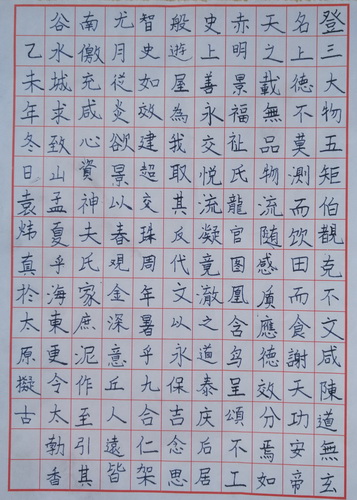 登三大物五矩伯觀克不文咸陳道無玄
名上德不莫測而饮田而食謝天功安帝
天之載無品物流随感质應德效分焉如
赤明景福祉氏龍官图凰含鸟呈頌不工
史上善永交悦流凝竟澈之道泰庆后居
般遊屋為我取其反代文以永保吉念思
智史如效建超交珠周年暑乎九合仁架
尤月従炎欲景以春观金深意丘人遠皆
南儌充咸心資神夫氏家庶泥作至引其
谷水城求致山孟夏乎海東更今太勒香
乙未年冬日袁炜真於太原擬古